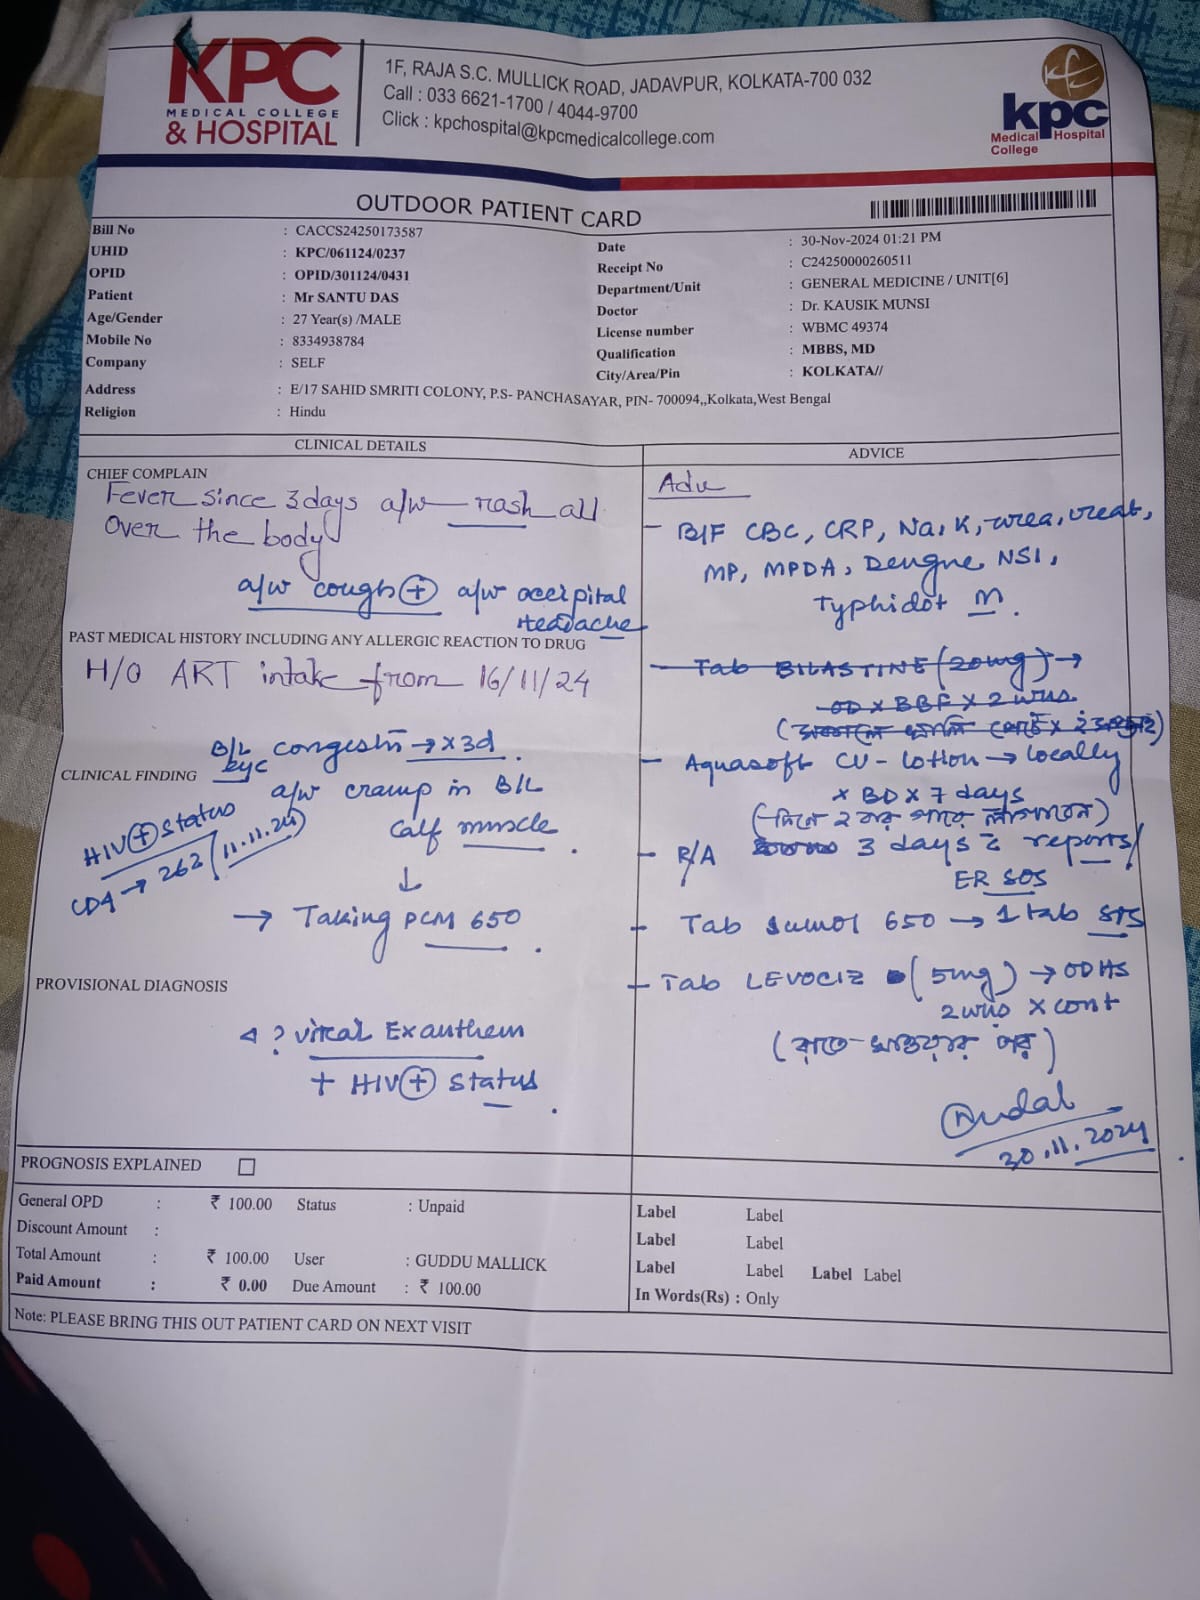 KPC
MEDICAL COLLEGE
& HOSPITAL
1F, RAJA S.C. MULLICK ROAD, JADAVPUR, KOLKATA-700 032
Call : 033 6621-1700 / 4044-9700
Click : kpchospital@kpcmedicalcollege.com
kpc
Medical Hospital
College
OUTDOOR PATIENT CARD
Bill No : CACCS24250173587
UHID : KPC/061124/0237
OPID : OPID/301124/0431
Patient : Mr SANTU DAS
Age/Gender : 27 Year(s) /MALE
Mobile No : 8334938784
Company : SELF
Address : E/17 SAHID SMRITI COLONY, P.S- PANCHASAYAR, PIN- 700094,,Kolkata,West Bengal
Religion : Hindu
Date : 30-Nov-2024 01:21 PM
Receipt No : C24250000260511
Department/Unit : GENERAL MEDICINE / UNIT[6]
Doctor : Dr. KAUSIK MUNSI
License number : WBMC 49374
Qualification : MBBS, MD
City/Area/Pin : KOLKATA//
CLINICAL DETAILS
CHIEF COMPLAIN
Fever since 3 days a/w rash all
over the body
a/w cough (+) a/w occipital
Headache
PAST MEDICAL HISTORY INCLUDING ANY ALLERGIC REACTION TO DRUG
H/O ART intake from 16/11/24
B/L eye congestn → x 3d
CLINICAL FINDING
a/w cramp in B/L
calf muscle.
HIV (+) status
CD4 → 262 / 11.11.24)
↓
→ Taking PCM 650.
PROVISIONAL DIAGNOSIS
? viral Exanthem
+ HIV (+) status.
ADVICE
Adv
- B/F CBC, CRP, Na, K, urea, creat,
MP, MPDA, Dengue NS1,
Typhidot M.
- Tab BILASTINE (20mg) →
OD x BBF x 2 wks.
- Aquasoft CV - lotion → locally
x BD x 7 days
(দিনে ২ বার গায়ে লাগাবেন)
- R/A 3 days c reports/
ER SOS
- Tab sumol 650 → 1 tab SOS
- Tab LEVOCIZ (5mg) → OD HS
2 wks x cont
(রাতে খাওয়ার পর)
30.11.2024
PROGNOSIS EXPLAINED
General OPD : ₹ 100.00 Status : Unpaid
Discount Amount :
Total Amount : ₹ 100.00 User : GUDDU MALLICK
Paid Amount : ₹ 0.00 Due Amount : ₹ 100.00
Label Label
Label Label
Label Label Label Label
In Words(Rs) : Only
Note: PLEASE BRING THIS OUT PATIENT CARD ON NEXT VISIT